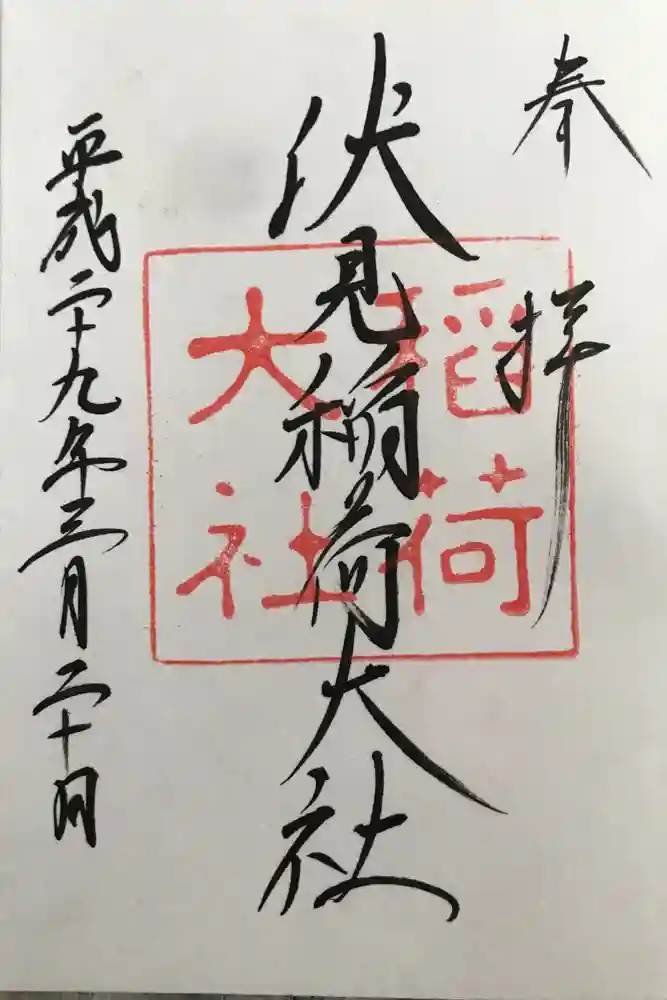 奉拝
伏見稲荷大社
稲荷
大社
平成二十九年三月二十日